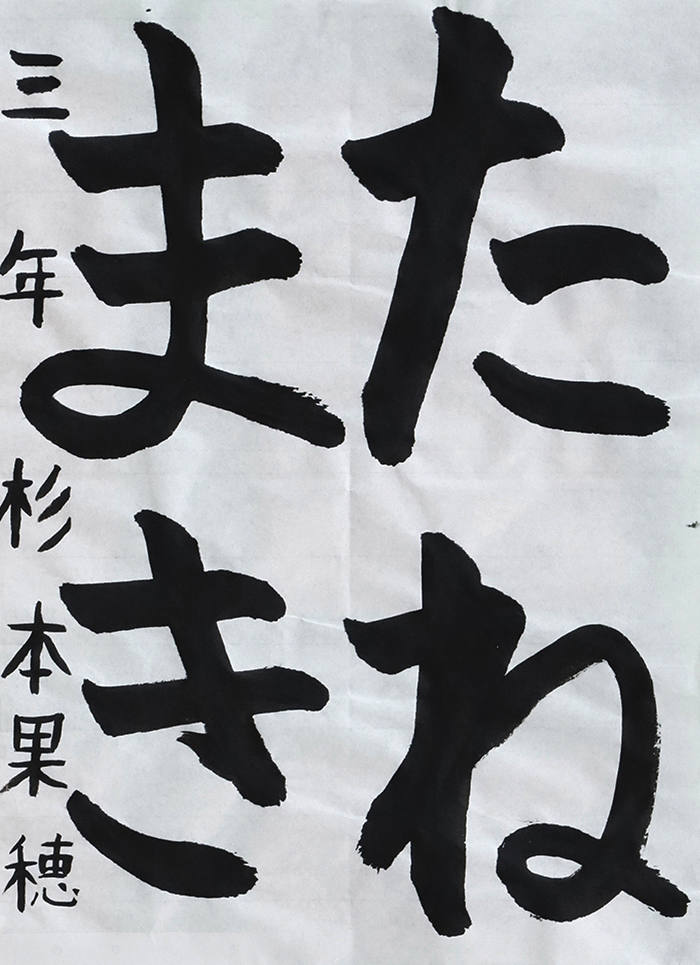 たね
まき
三年杉本果穂